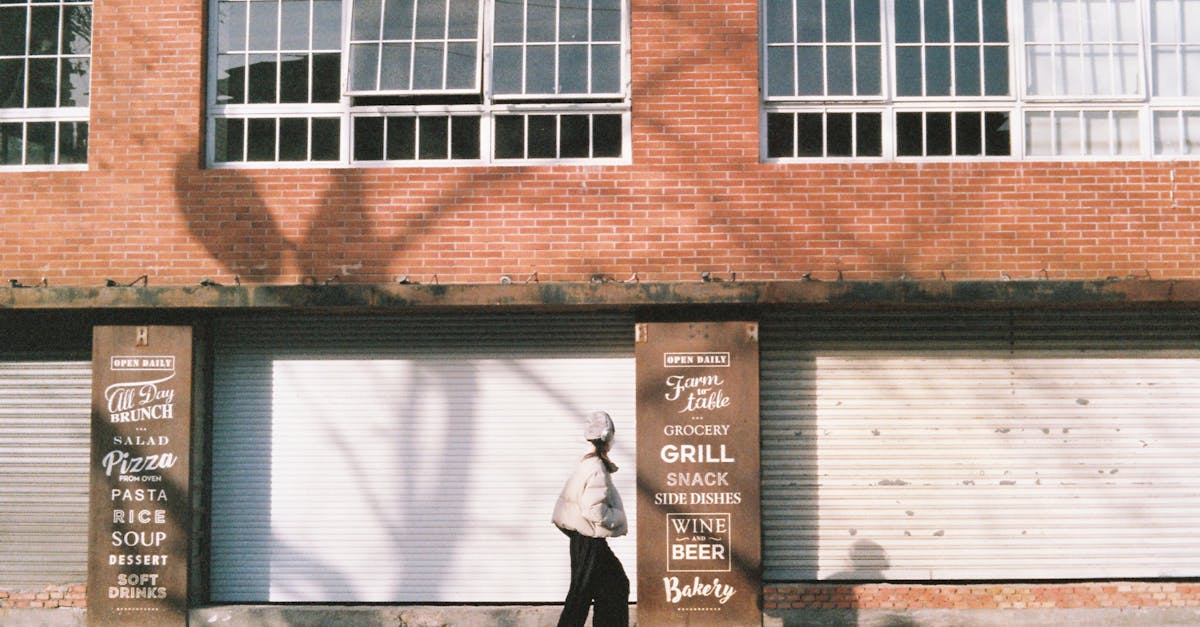 OPEN DAILY
All Day
BRUNCH
SALAD
Pizza
FROM OVEN
PASTA
RICE
SOUP
DESSERT
SOFT
DRINKS
OPEN DAILY
Farm
to
table
GROCERY
GRILL
SNACK
SIDE DISHES
WINE
AND
BEER
Bakery